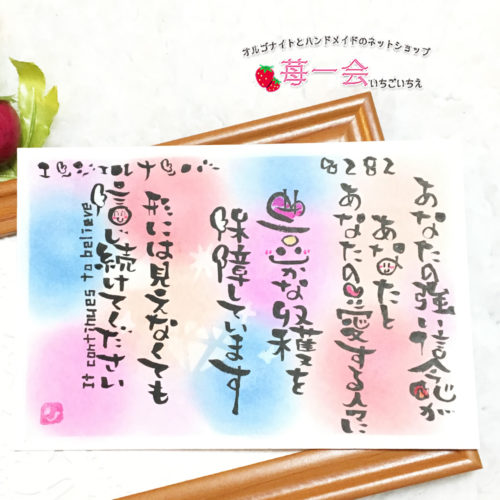 オルゴナイトとハンドメイドのネットショップ
苺一会
いちごいちえ
エンジェルナンバー 8282
あなたの強い信念が
あなたと
あなたの愛する人々に
豊かな収穫を
保障しています
形には見えなくても
信じ続けてください
It continues to believe